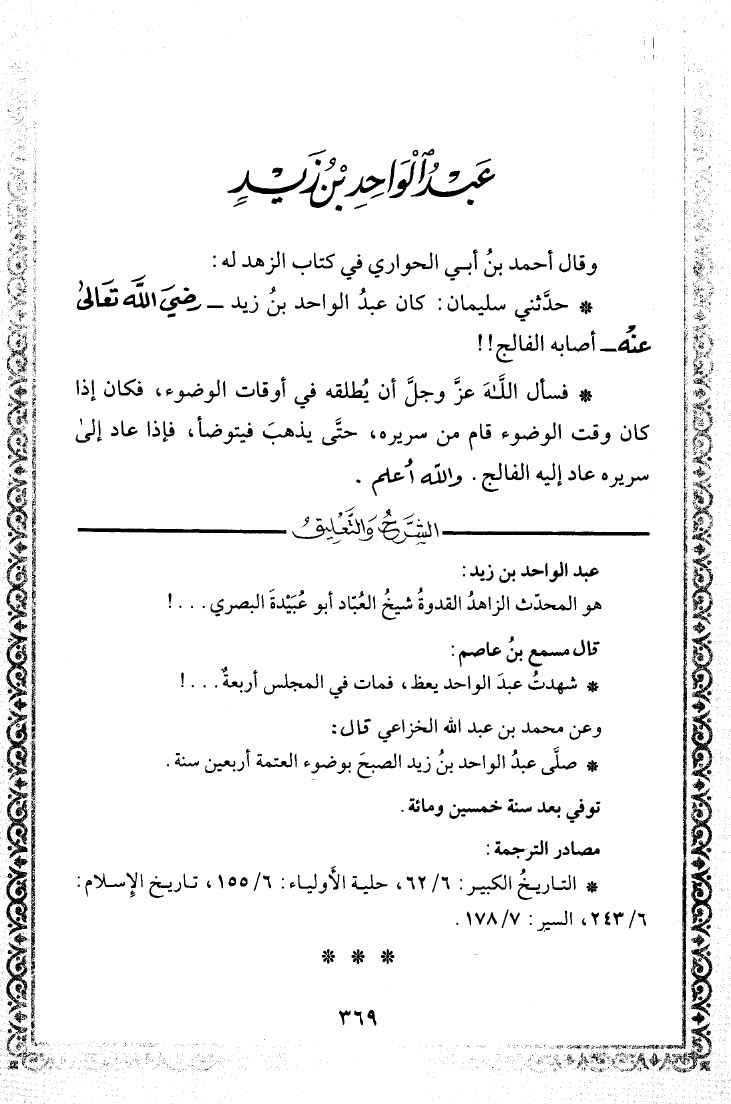 عَبْدُ ٱلْوَاحِدِ بْنُ زَيْدٍ
وقال أحمد بنُ أبي الحواري في كتاب الزهد له:
* حدَّثني سليمان: كان عبدُ الواحد بنُ زيد ــ رضيَ اللَّه تَعَالىٰ
عنْهُ ــ أصابه الفالج!!
* فسأل اللَّـٰهَ عزَّ وجلَّ أن يُطلقه في أوقات الوضوء، فكان إذا
كان وقت الوضوء قام من سريره، حتَّى يذهبَ فيتوضأ، فإذا عاد إلىٰ
سريره عاد إليه الفالج. والله أعلم.
الشَّرْحُ وَالتَّعْلِيقُ
عبد الواحد بن زيد:
هو المحدّث الزاهدُ القدوةُ شيخُ العُبّاد أبو عُبَيْدةَ البصري...!
قال مسمع بنُ عاصم:
* شهدتُ عبدَ الواحد يعظ، فمات في المجلس أربعةٌ...!
وعن محمد بن عبد الله الخزاعي قال:
* صلَّى عبدُ الواحد بنُ زيد الصبحَ بوضوء العتمة أربعين سنة.
توفي بعد سنة خمسين ومائة.
مصادر الترجمة:
* التاريخُ الكبير: ٦/ ٦٢، حلية الأولياء: ٦/ ١٥٥، تاريخ الإسلام:
٦/ ٢٤٣، السير: ٧/ ١٧٨.
* * *
٣٦٩